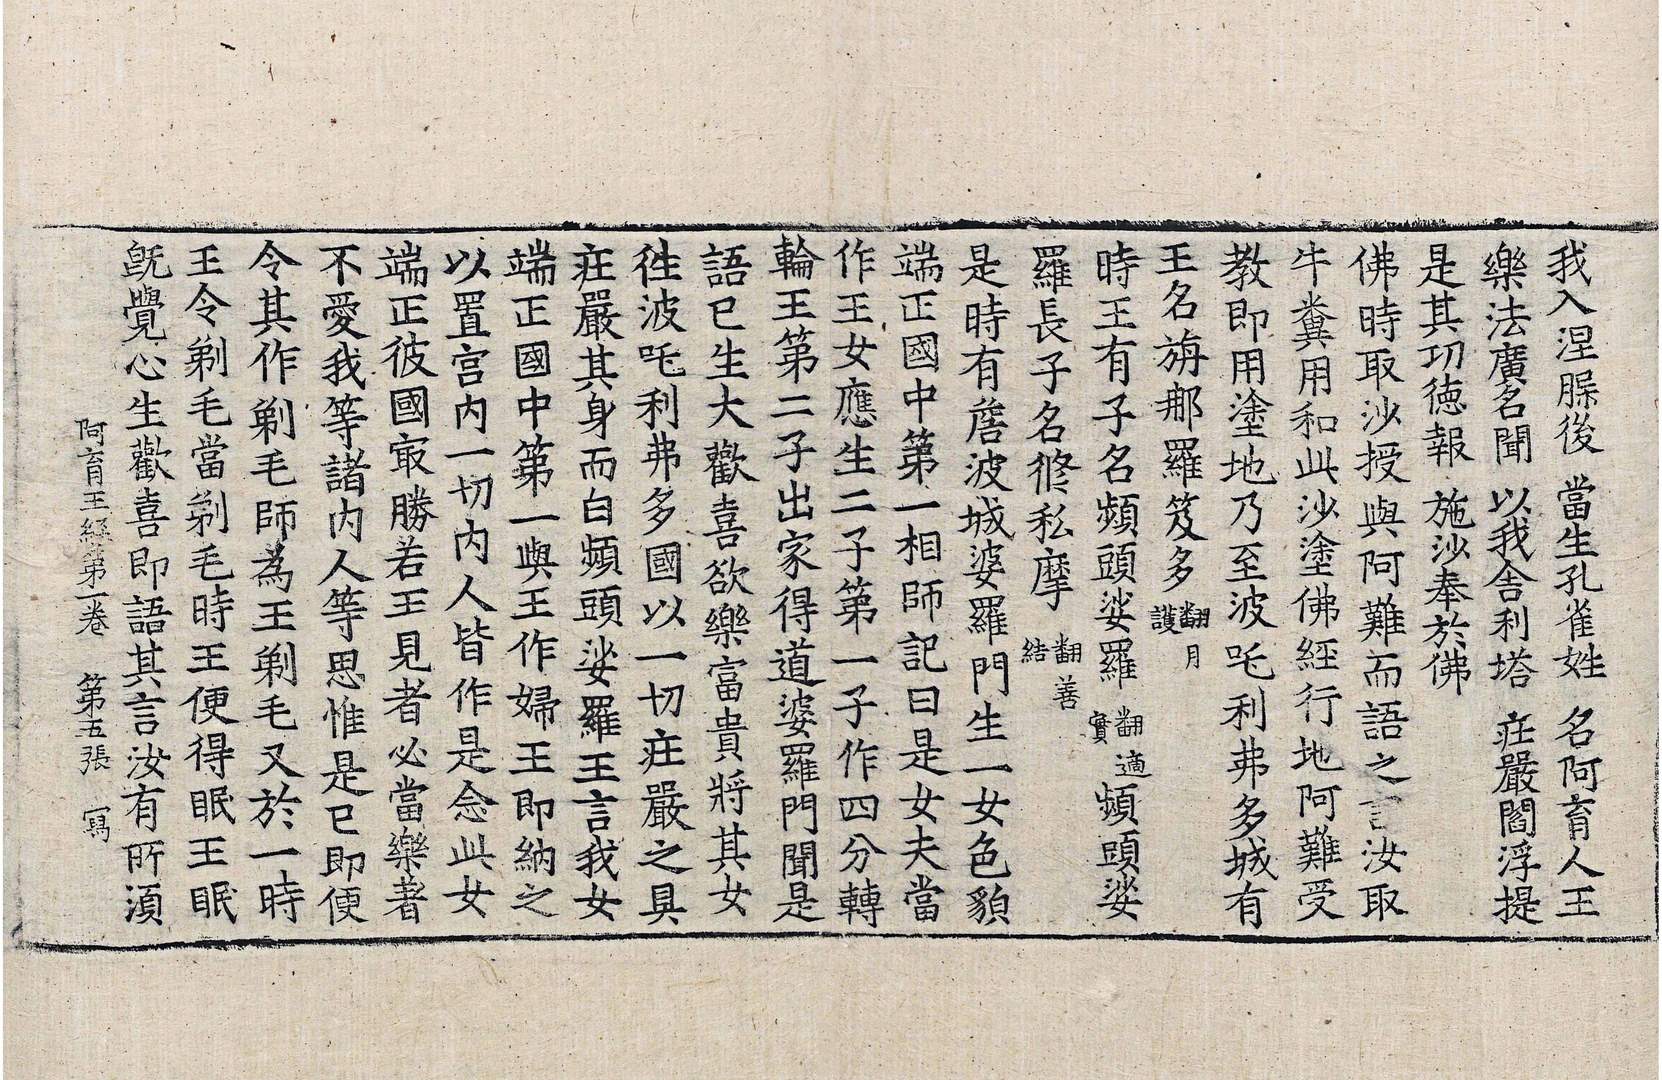 我入涅槃後 當生孔雀姓 名阿育人王
樂法廣名聞 以我舍利塔 莊嚴閻浮提
是其功德報 施沙奉於佛
佛時取沙授與阿難而語之言汝取
牛糞用和此沙塗佛經行地阿難受
教即用塗地乃至波吒利弗多城有
王名旃那羅笈多翻月護
時王有子名頻頭娑羅翻適實頻頭娑
羅長子名修私摩翻善結
是時有詹波城婆羅門生一女色貌
端正國中第一相師記曰是女夫當
作王女應生二子第一子作四分轉
輪王第二子出家得道婆羅門聞是
語已生大歡喜欲樂富貴將其女
往波吒利弗多國以一切莊嚴之具
莊嚴其身而白頻頭娑羅王言我女
端正國中第一與王作婦王即納之
以置宮内一切内人皆作是念此女
端正彼國㝡勝若王見者必當樂著
不愛我等諸内人等思惟是已即便
令其作剃毛師為王剃毛又於一時
王令剃毛當剃毛時王便得眠王眠
既覺心生歡喜即語其言汝有所湏
阿育王經第一卷 第五張 寫